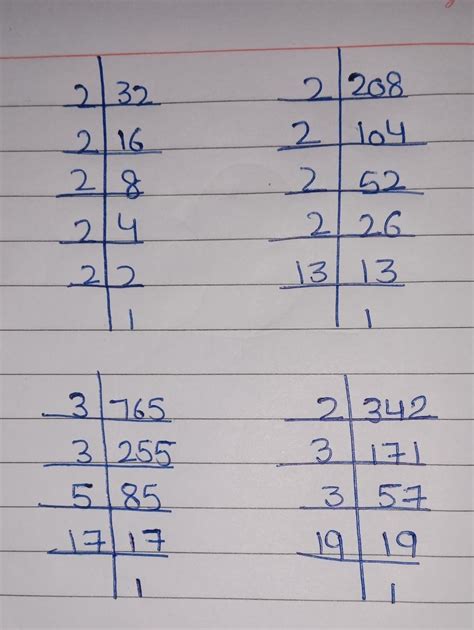 2 32
2 16
2 8
2 4
2 2
1
2 208
2 104
2 52
2 26
13 13
1
3 765
3 255
5 85
17 17
1
2 342
3 171
3 57
19 19
1